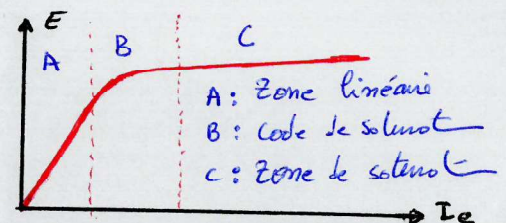 E
A B C
A: Zone linéaire
B: Code de saturat
C: Zone de saturat
Ie